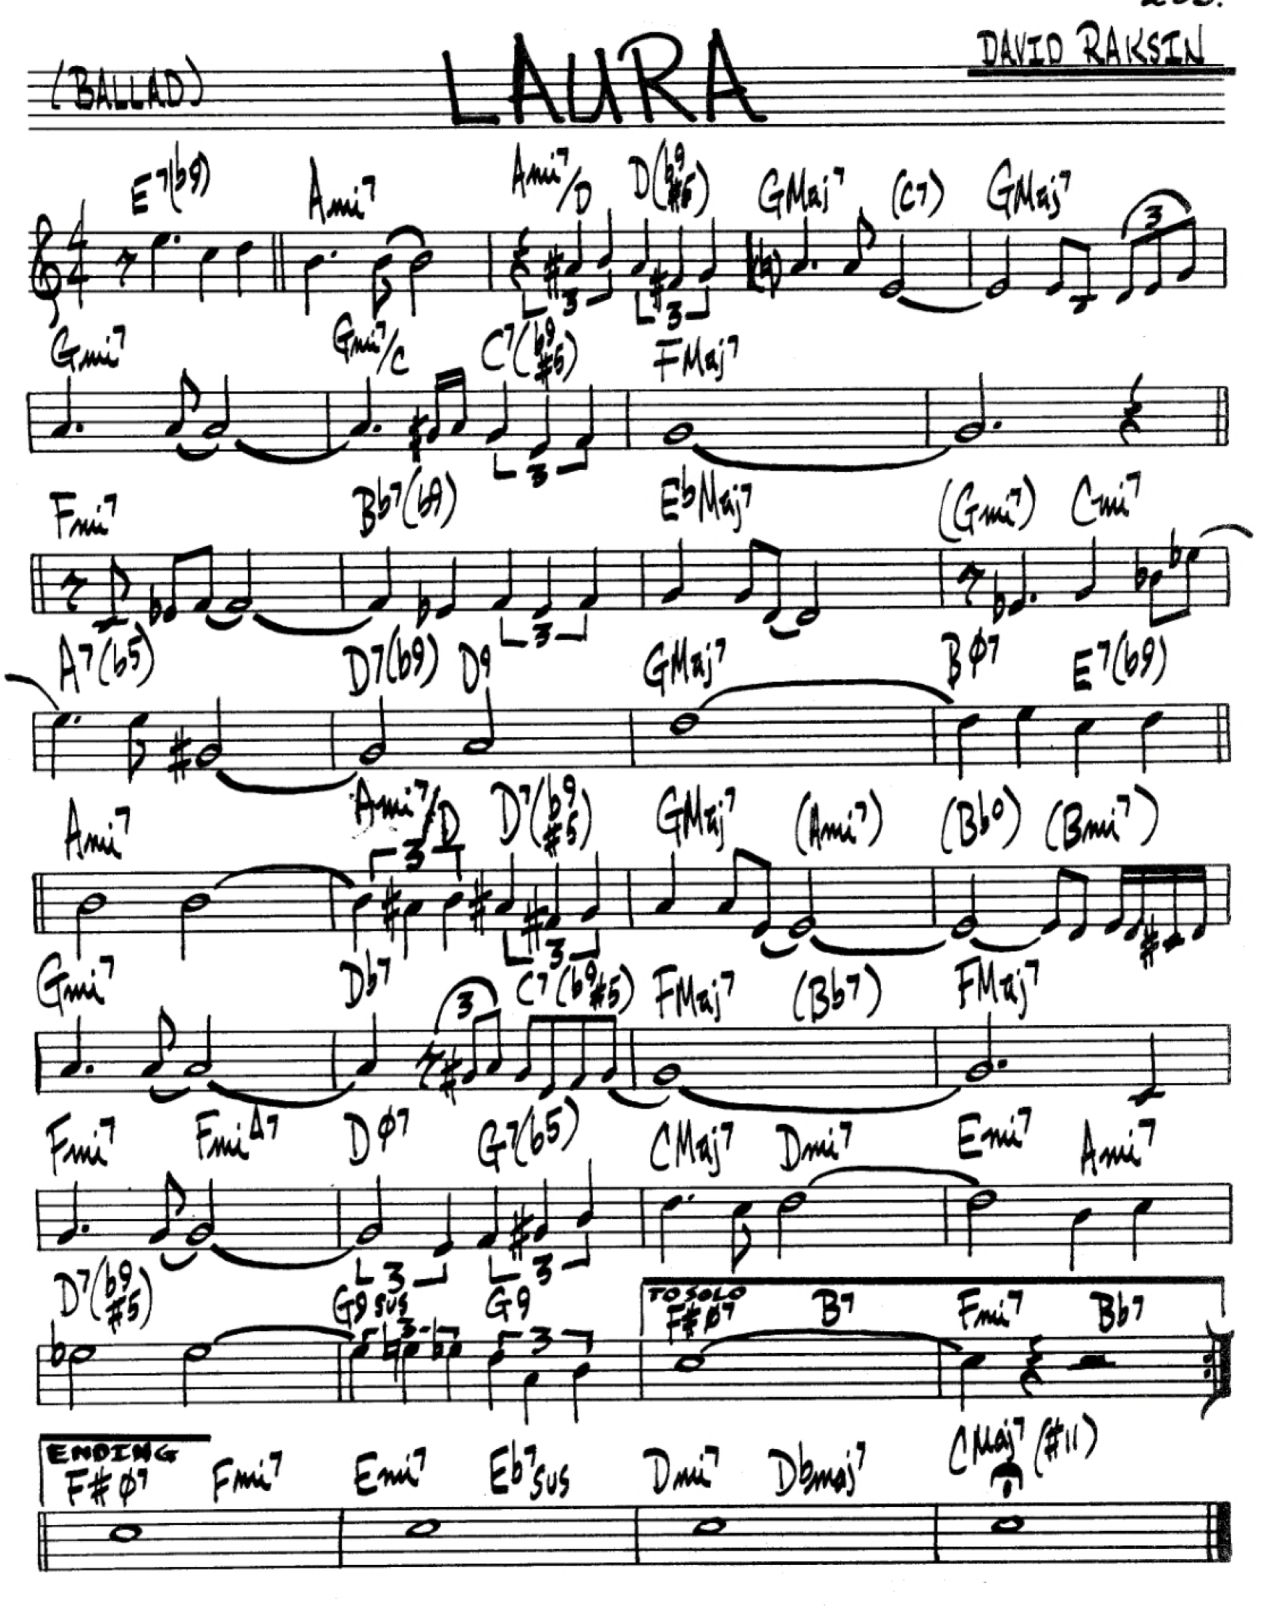 (BALLAD) LAURA DAVID RAKSIN
E7(b9) Ami7 Ami7/D D(b9 #5) GMaj7 (C7) GMaj7
4/4 3 3 (♮) 3
Gmi7 Gmi7/C C7(b9 #5) FMaj7
3
Fmi7 Bb7(b9) EbMaj7 (Gmi7) Cmi7
3
A7(b5) D7(b9) D9 GMaj7 Bø7 E7(b9)
Ami7 Ami7/D D7(b9 #5) GMaj7 (Ami7) (Bbo) (Bmi7)
3 3
Gmi7 Db7 C7(b9 #5) FMaj7 (Bb7) FMaj7
3
Fmi7 FmiΔ7 Dø7 G7(b5) CMaj7 Dmi7 Emi7 Ami7
3 3
D7(b9 #5) G9sus G9 TO SOLO F#ø7 B7 Fmi7 Bb7
3 3
ENDING
F#ø7 Fmi7 Emi7 Eb7sus Dmi7 Dbmaj7 CMaj7(#11)